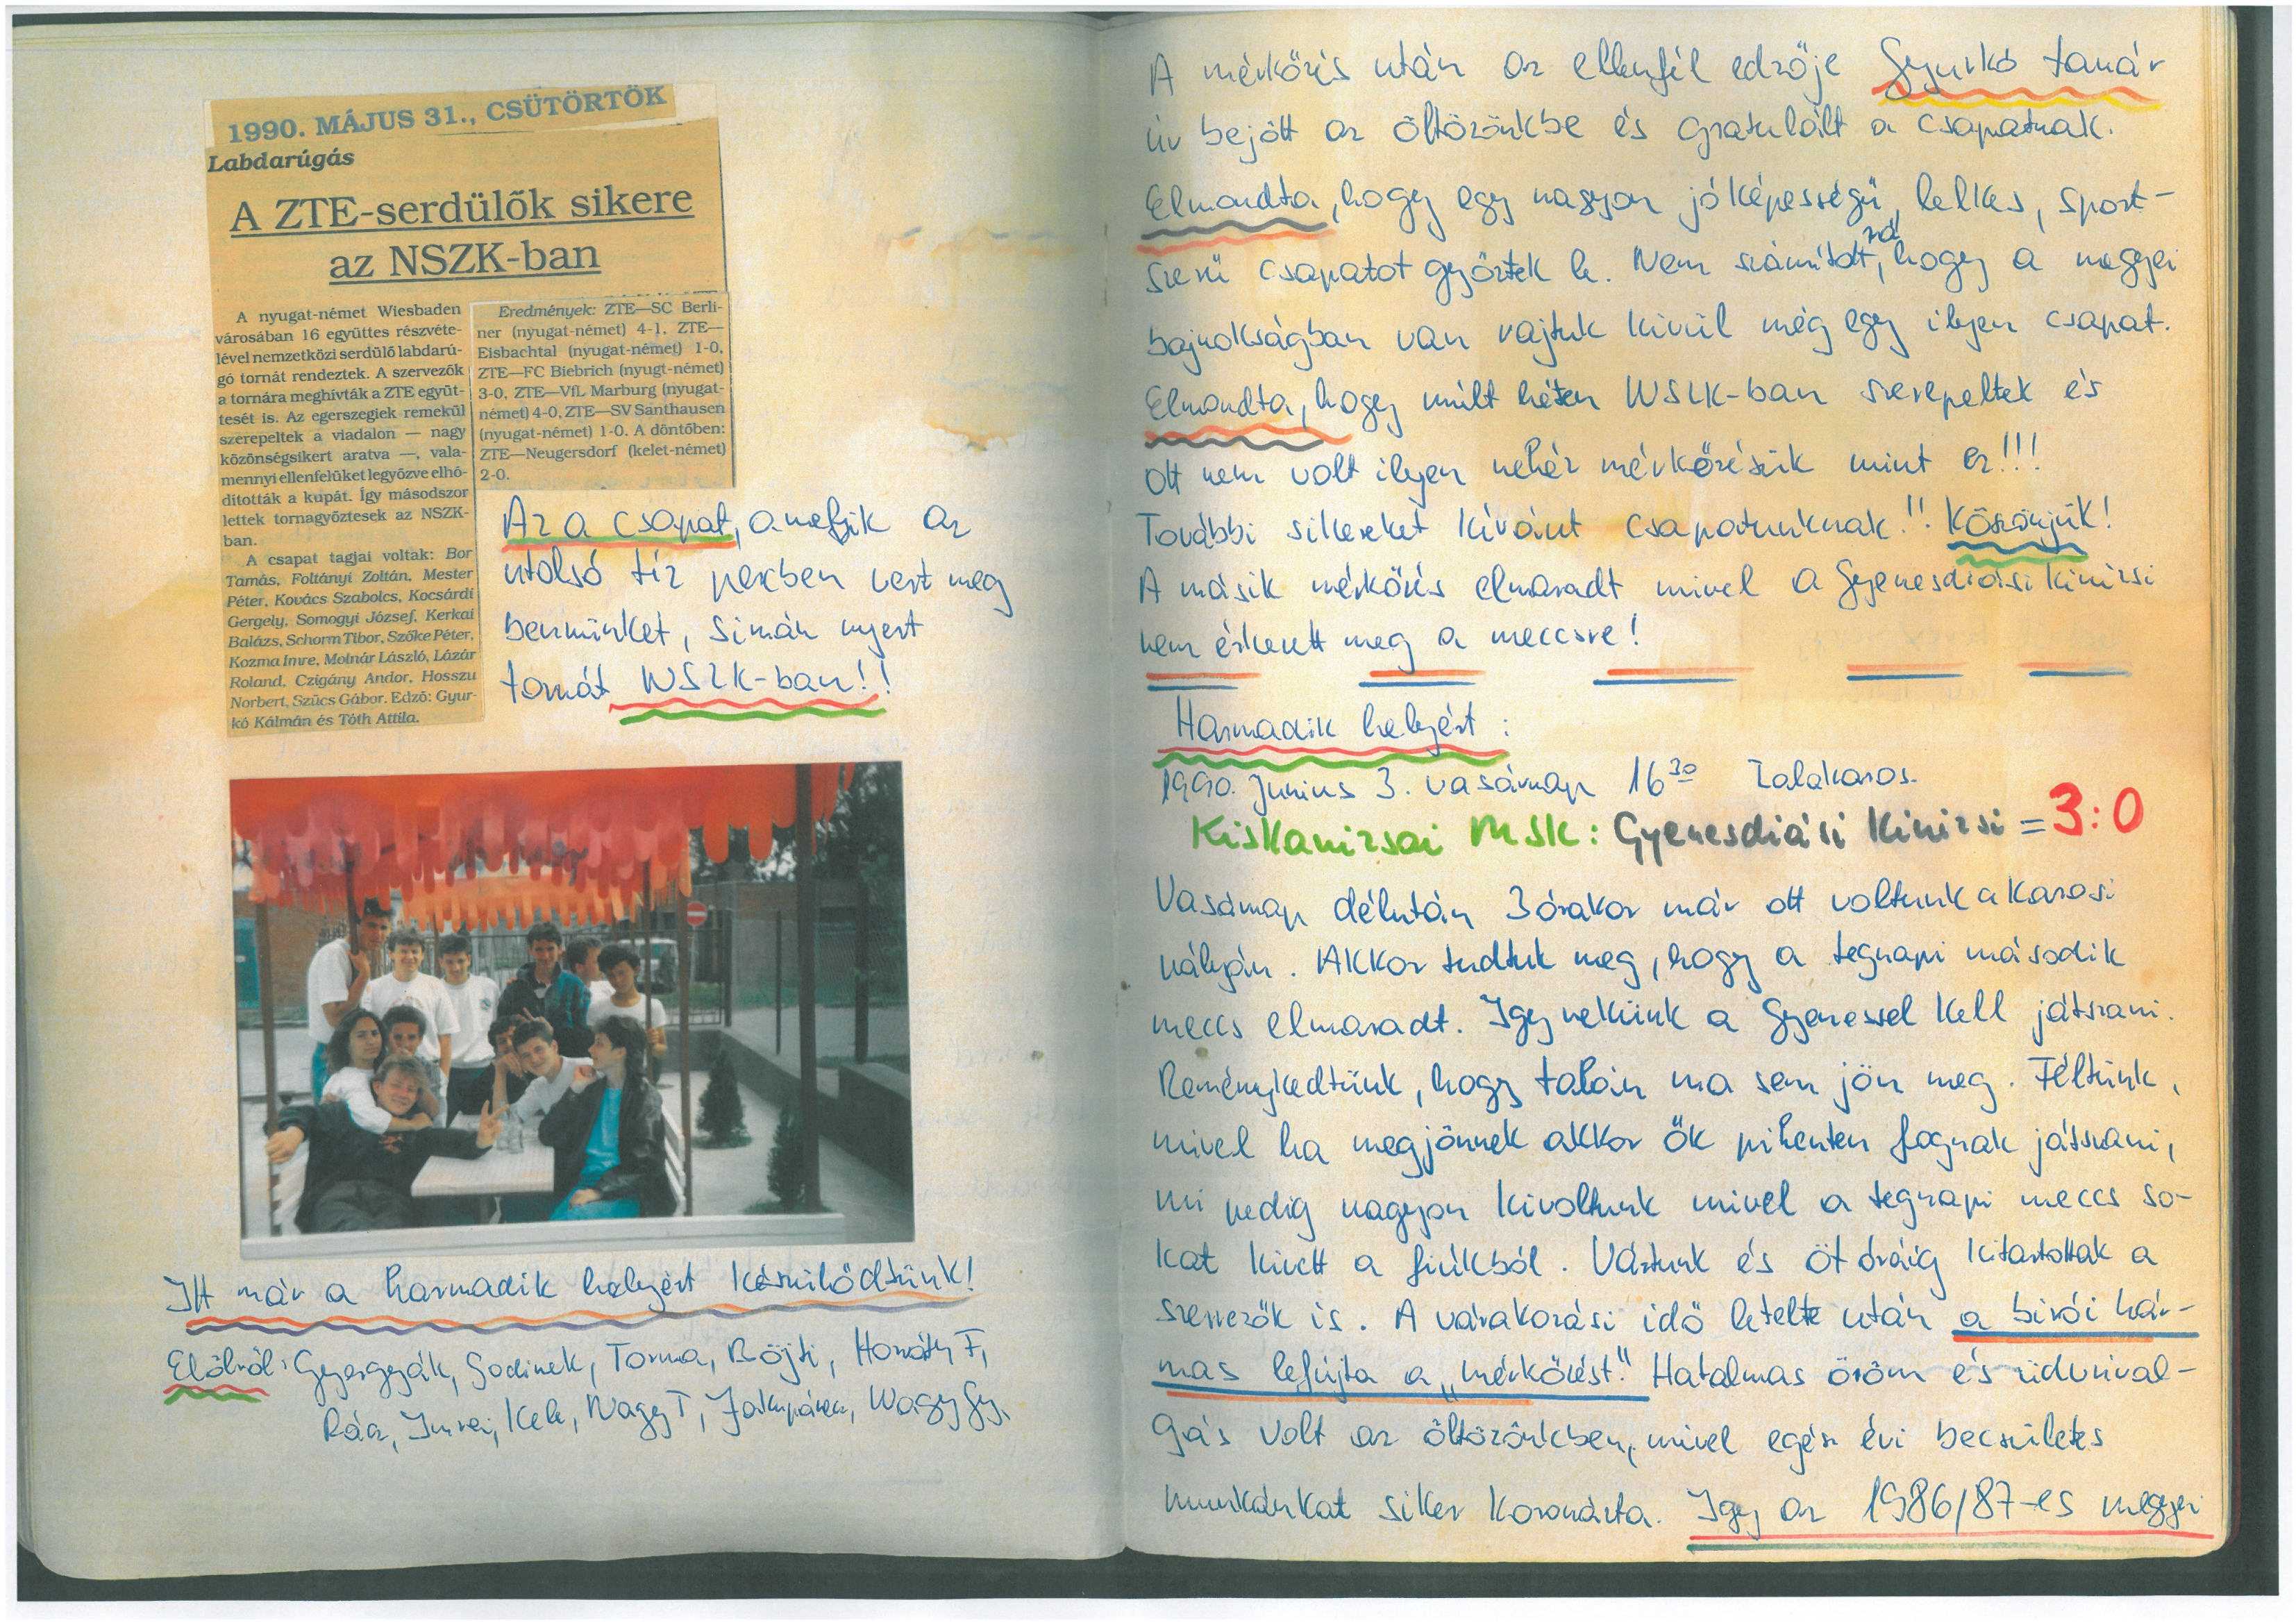 1990. MÁJUS 31., CSÜTÖRTÖK
Labdarúgás
A ZTE-serdülők sikere
az NSZK-ban
A nyugat-német Wiesbaden
városában 16 együttes részvéte-
lével nemzetközi serdülő labdarú-
gó tornát rendeztek. A szervezők
a tornára meghívták a ZTE együt-
tesét is. Az egerszegiek remekül
szerepeltek a viadalon — nagy
közönségsikert aratva —, vala-
mennyi ellenfelüket legyőzve elhó-
dították a kupát. Így másodszor
lettek tornagyőztesek az NSZK-
ban.
A csapat tagjai voltak: Bor
Tamás, Foltányi Zoltán, Mester
Péter, Kovács Szabolcs, Kocsárdi
Gergely, Somogyi József, Kerkai
Balázs, Schorm Tibor, Szőke Péter,
Kozma Imre, Molnár László, Lázár
Roland, Czigány Andor, Hosszu
Norbert, Szűcs Gábor. Edző: Gyur-
kó Kálmán és Tóth Attila.
Eredmények: ZTE—SC Berli-
ner (nyugat-német) 4-1, ZTE—
Eisbachtal (nyugat-német) 1-0,
ZTE—FC Biebrich (nyugt-német)
3-0, ZTE—VfL Marburg (nyugat-
német) 4-0, ZTE—SV Santhausen
(nyugat-német) 1-0. A döntőben:
ZTE—Neugersdorf (kelet-német)
2-0.
Az a csapat, amelyik az
utolsó tíz percben vert meg
bennünket, simán nyert
tornát NSZK-ban!!
Itt már a harmadik helyért készülődtünk!
Elölről: Gyergyák, Godinek, Torma, Böjti, Horváth F,
Rácz, Imrei, Kele, Nagy T, Nagy Gy.
A mérkőzés után az ellenfél edzője Gyurkó tanár
úr bejött az öltözőnkbe és gratulált a csapatnak.
Elmondta, hogy egy nagyon jóképességű, lelkes, sport-
szerű csapatot győztek le. Nem számított rá, hogy a megyei
bajnokságban van rajtuk kívül még egy ilyen csapat.
Elmondta, hogy múlt héten NSZK-ban szerepeltek és
ott nem volt ilyen nehéz mérkőzésük mint ez!!!
További sikereket kívánt csapatunknak!! Köszönjük!
A másik mérkőzés elmaradt mivel a Gyenesdiási Kinizsi
nem érkezett meg a meccsre!
Harmadik helyért:
1990. Junius 3. vasárnap 16 30 Zalakaros.
Kiskanizsai MSK: Gyenesdiási Kinizsi = 3:0
Vasárnap délután 3 órakor már ott voltunk a karosi
pályán. Akkor tudtuk meg, hogy a tegnapi második
meccs elmaradt. Igy nekünk a Gyenessel kell játszani.
Reménykedtünk, hogy talán ma sem jön meg. Féltünk,
mivel ha megjönnek akkor ők pihenten fognak játszani,
mi pedig nagyon kivoltunk mivel a tegnapi meccs so-
kat kivett a fiúkból. Vártunk és öt óráig kitartottak a
szervezők is. A várakozási idő letelte után a birói hár-
mas lefújta a „mérkőzést." Hatalmas öröm és üdvrival-
gás volt az öltözőnkben, mivel egész évi becsületes
munkánkat siker koronázta. Igy az 1986/87-es megyei